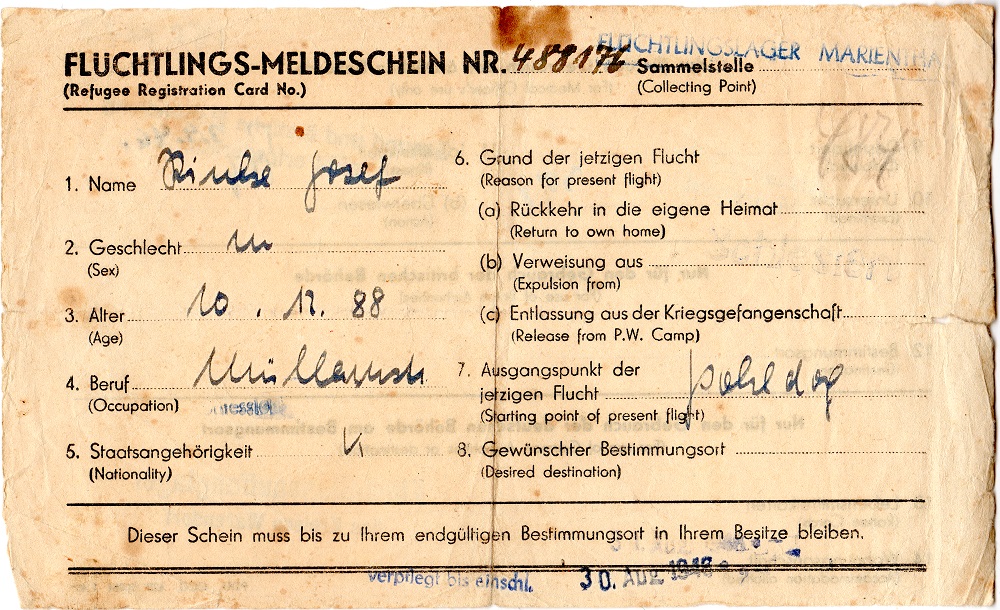 FLÜCHTLINGS-MELDESCHEIN NR. 488176
(Refugee Registration Card No.)
FLÜCHTLINGSLAGER MARIENTHA
Sammelstelle
(Collecting Point)
1. Name Josef
2. Geschlecht m
(Sex)
3. Alter 10. 12. 88
(Age)
4. Beruf
(Occupation)
5. Staatsangehörigkeit
(Nationality)
6. Grund der jetzigen Flucht
(Reason for present flight)
(a) Rückkehr in die eigene Heimat
(Return to own home)
(b) Verweisung aus
(Expulsion from)
(c) Entlassung aus der Kriegsgefangenschaft
(Release from P.W. Camp)
7. Ausgangspunkt der
jetzigen Flucht
(Starting point of present flight)
8. Gewünschter Bestimmungsort
(Desired destination)
Dieser Schein muss bis zu Ihrem endgültigen Bestimmungsort in Ihrem Besitze bleiben.
verpflegt bis einschl. 30. Aug. 1946